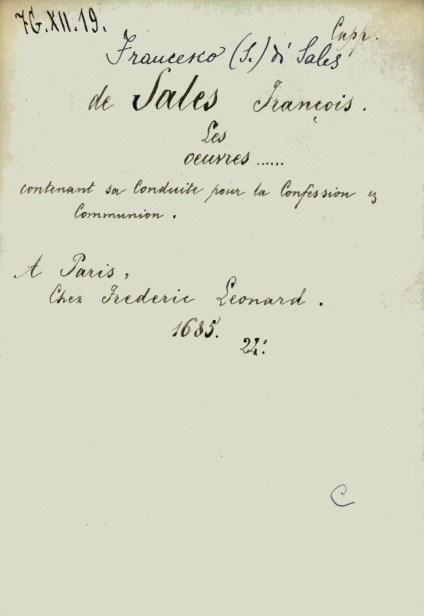 7G.XII.19.
Capp.
Francesco (S.) di Sales
de Sales François.
Les
oeuvres ......
contenant sa Conduite pour la Confession &
Communion.
A Paris,
Chez Frederic Leonard.
1685.
24:
C